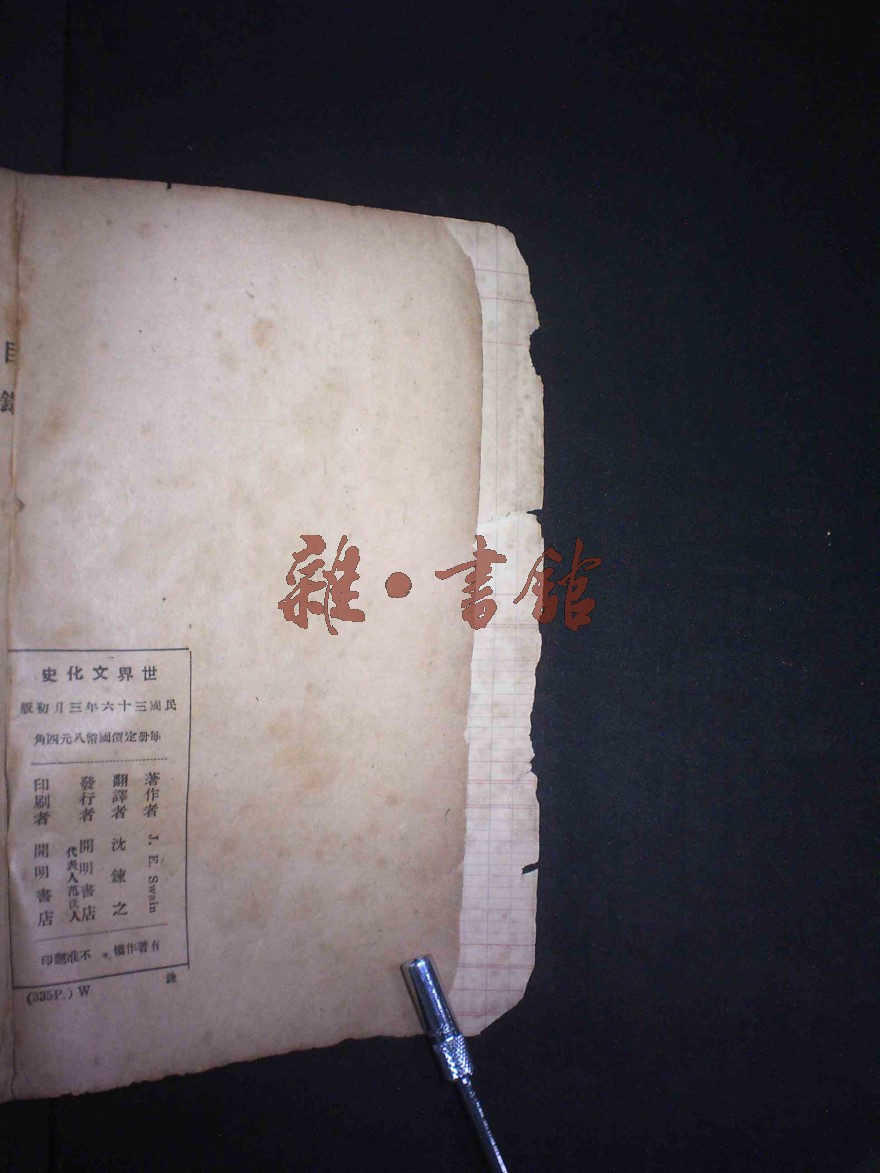 目錄
雜·書館
世界文化史
民國三十六年三月初版
每冊定價國幣八元四角
著作者 J. E. Swain
翻譯者 沈鍊之
發行者 開明書店
代表人范洗人
印刷者 開明書店
有著作權＊不准翻印
(335P.) W